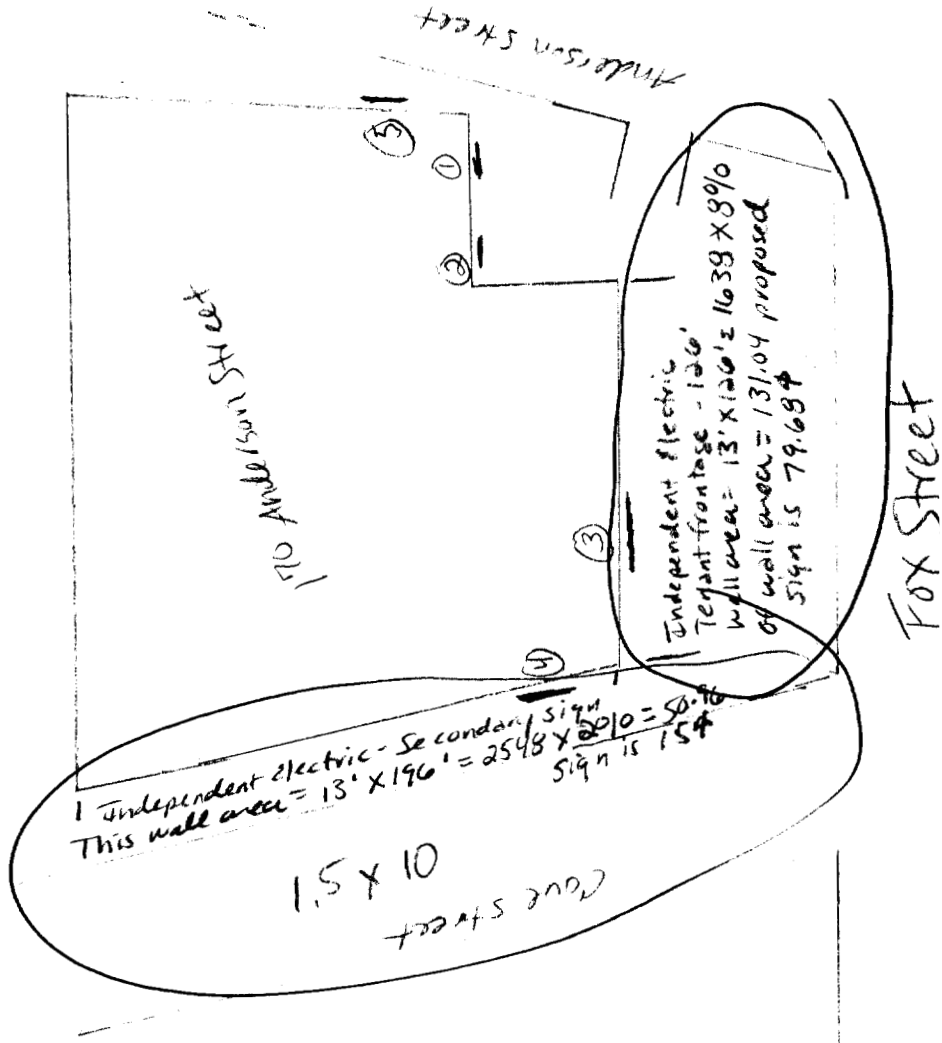 Anderson Street
5
1
2
170 Anderson Street
Independent Electric
Tenant frontage - 126'
wall area = 13' X 126' = 1638 X 8%
of wall area = 131.04 proposed
sign is 79.68⌽
3
Fox Street
4
1 Independent Electric - Secondary sign
This wall area = 13' X 196' = 2548 X 2% = 50.96
sign is 15⌽
1.5 X 10
Cove Street